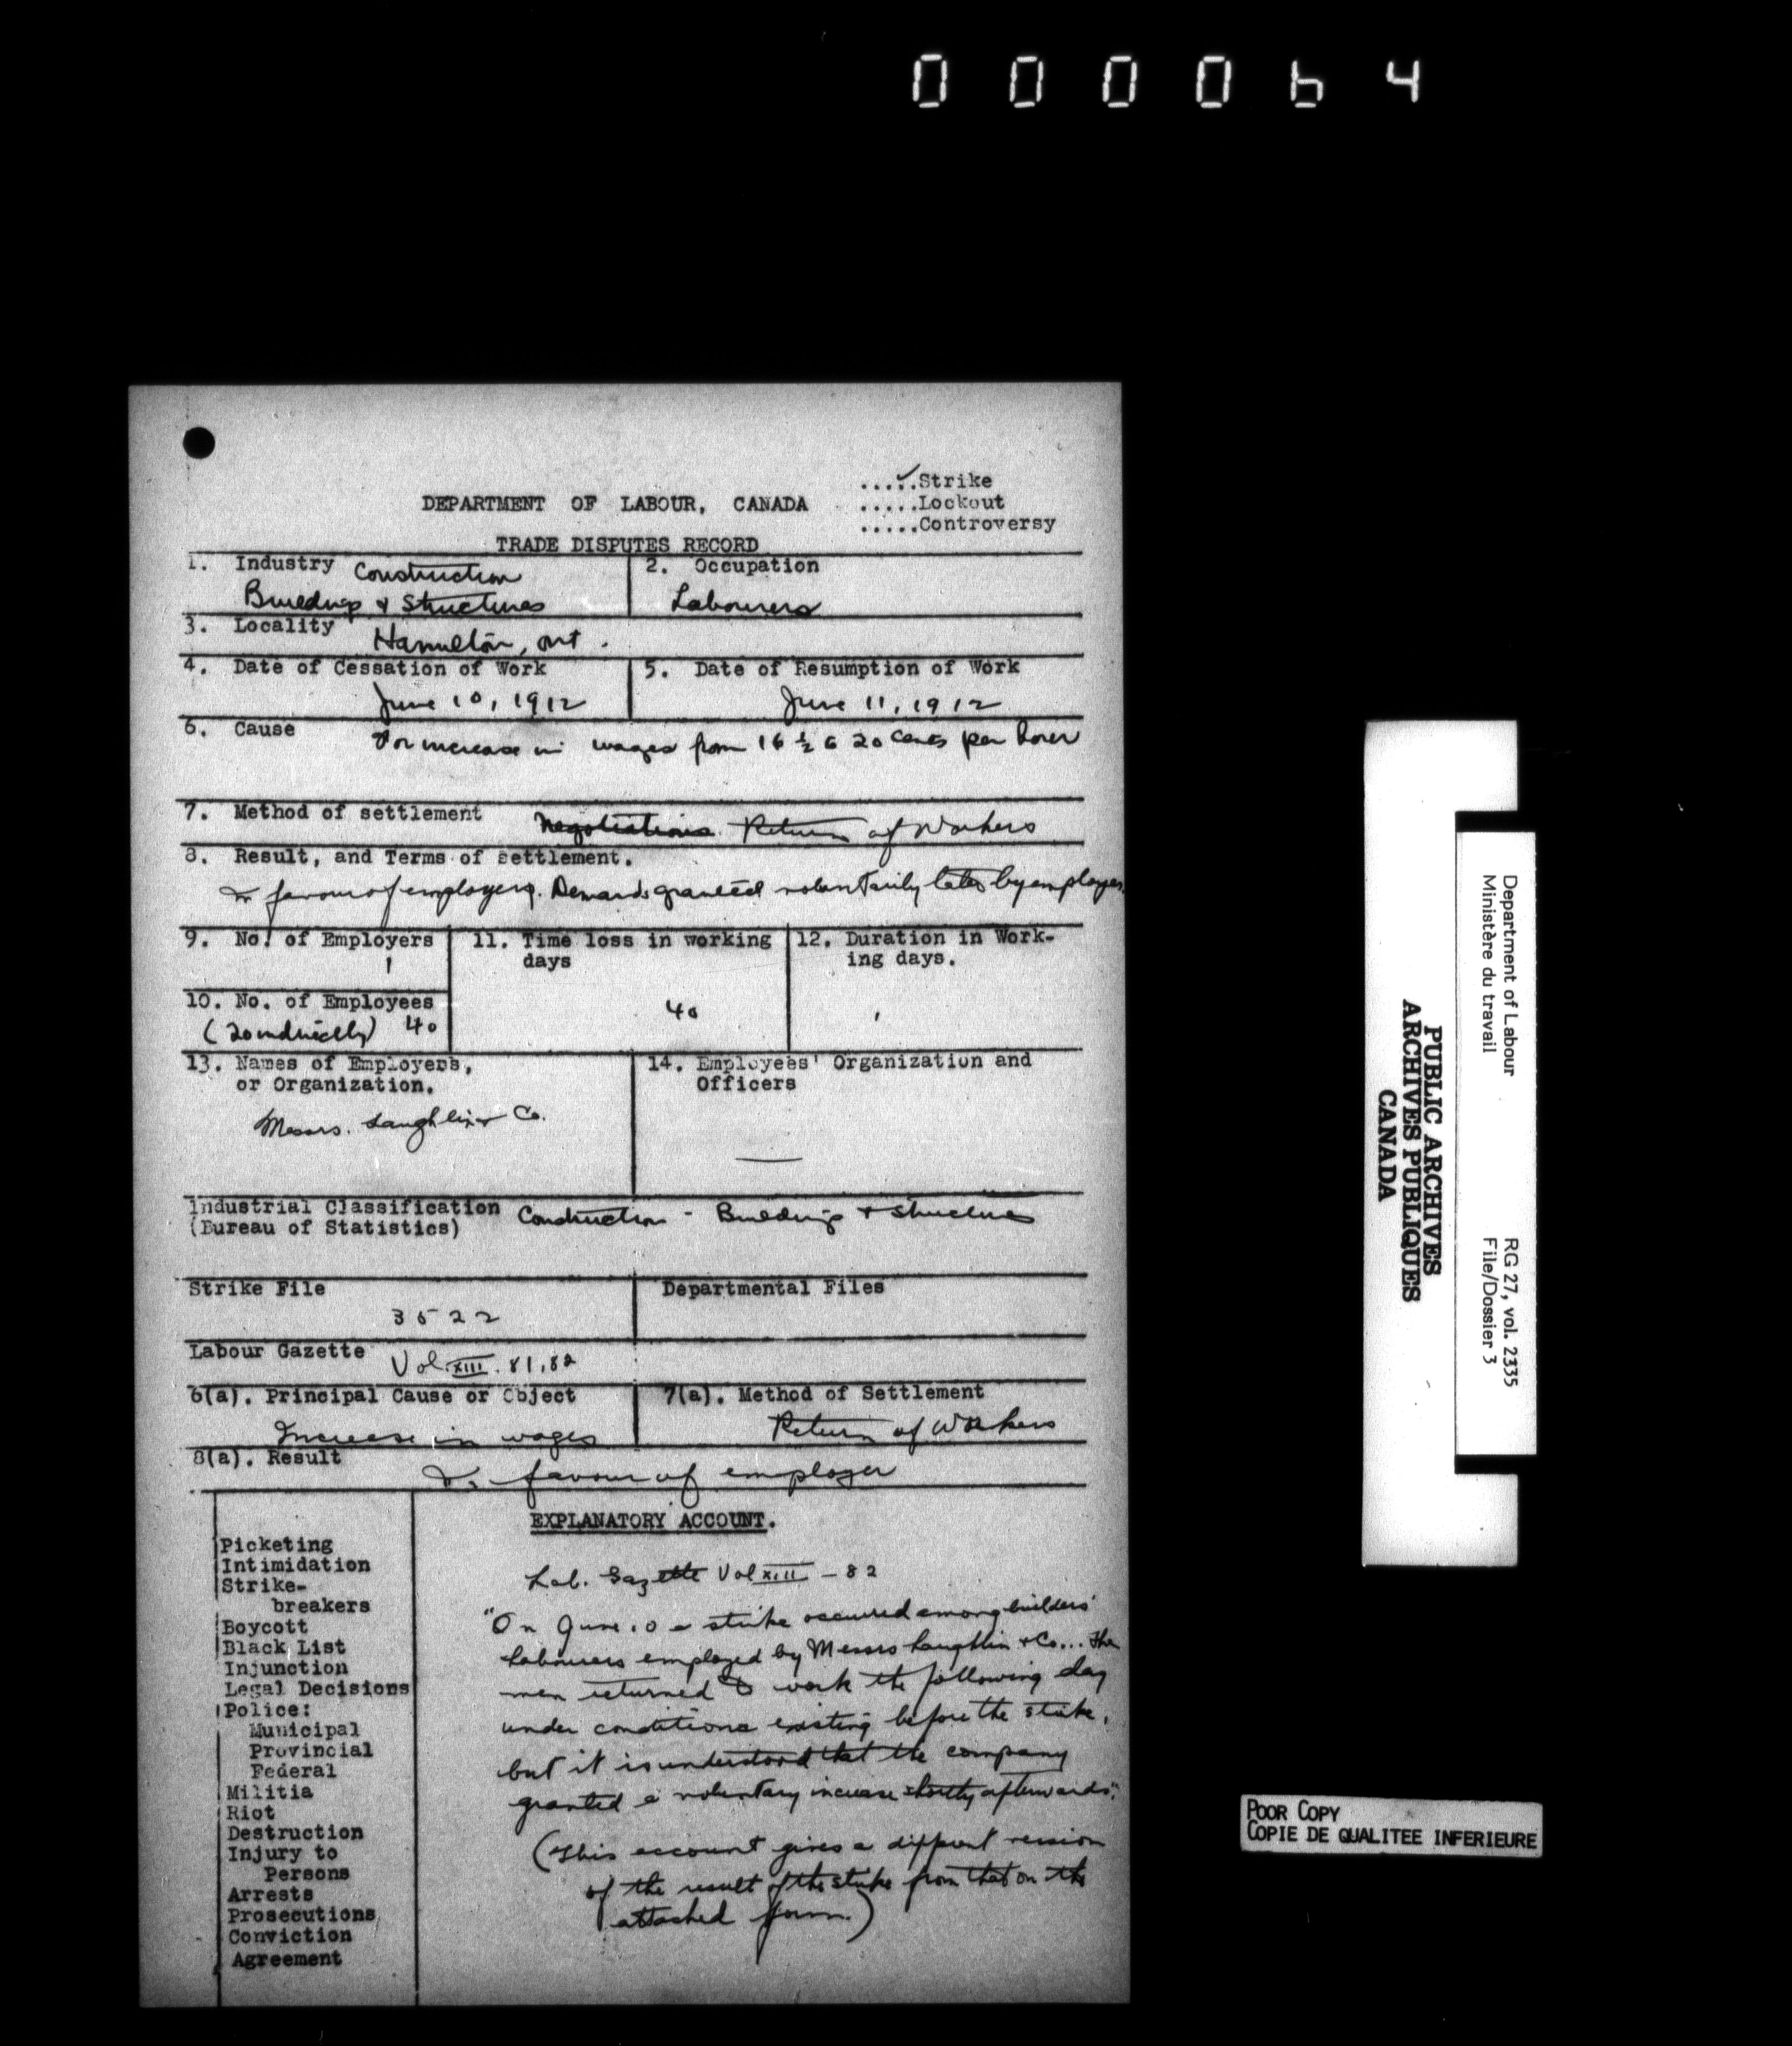 000064
.....Strike
DEPARTMENT OF LABOUR, CANADA
.....Lockout
.....Controversy
TRADE DISPUTES RECORD
1. Industry Construction
Buildings & Structures
2. Occupation
Labourers
3. Locality Hamilton, Ont.
4. Date of Cessation of Work
June 10, 1912
5. Date of Resumption of Work
June 11, 1912
6. Cause For increase in wages from 16 ½ to 20 cents per hour
7. Method of settlement Negotiations Return of Workers
8. Result, and Terms of settlement.
In favour of employers. Demands granted voluntarily later by employer.
9. No. of Employers
1
10. No. of Employees
(20 indirectly) 40
11. Time loss in working
days
40
12. Duration in Work-
ing days.
1
13. Names of Employers,
or Organization.
Messrs. Laughlin & Co.
14. Employees' Organization and
Officers
Industrial Classification Construction - Buildings & Structures
(Bureau of Statistics)
Strike File
3522
Departmental Files
Labour Gazette Vol. XIII. 81,82
6(a). Principal Cause or Object
Increase in wages
7(a). Method of Settlement
Return of Workers
8(a). Result
In favour of employer
Picketing
Intimidation
Strike-
breakers
Boycott
Black List
Injunction
Legal Decisions
Police:
Municipal
Provincial
Federal
Militia
Riot
Destruction
Injury to
Persons
Arrests
Prosecutions
Conviction
Agreement
EXPLANATORY ACCOUNT.
Lab. Gazette Vol XIII - 82
"On June 10 a strike occurred among builders'
labourers employed by Messrs Laughlin & Co... The
men returned to work the following day
under conditions existing before the strike,
but it is understood that the company
granted a voluntary increase shortly afterwards".
(This account gives a different version
of the result of the strike from that on the
attached form.)
Department of Labour
Ministère du travail
RG 27, vol. 2335
File/Dossier 3
PUBLIC ARCHIVES
ARCHIVES PUBLIQUES
CANADA
POOR COPY
COPIE DE QUALITEE INFERIEURE